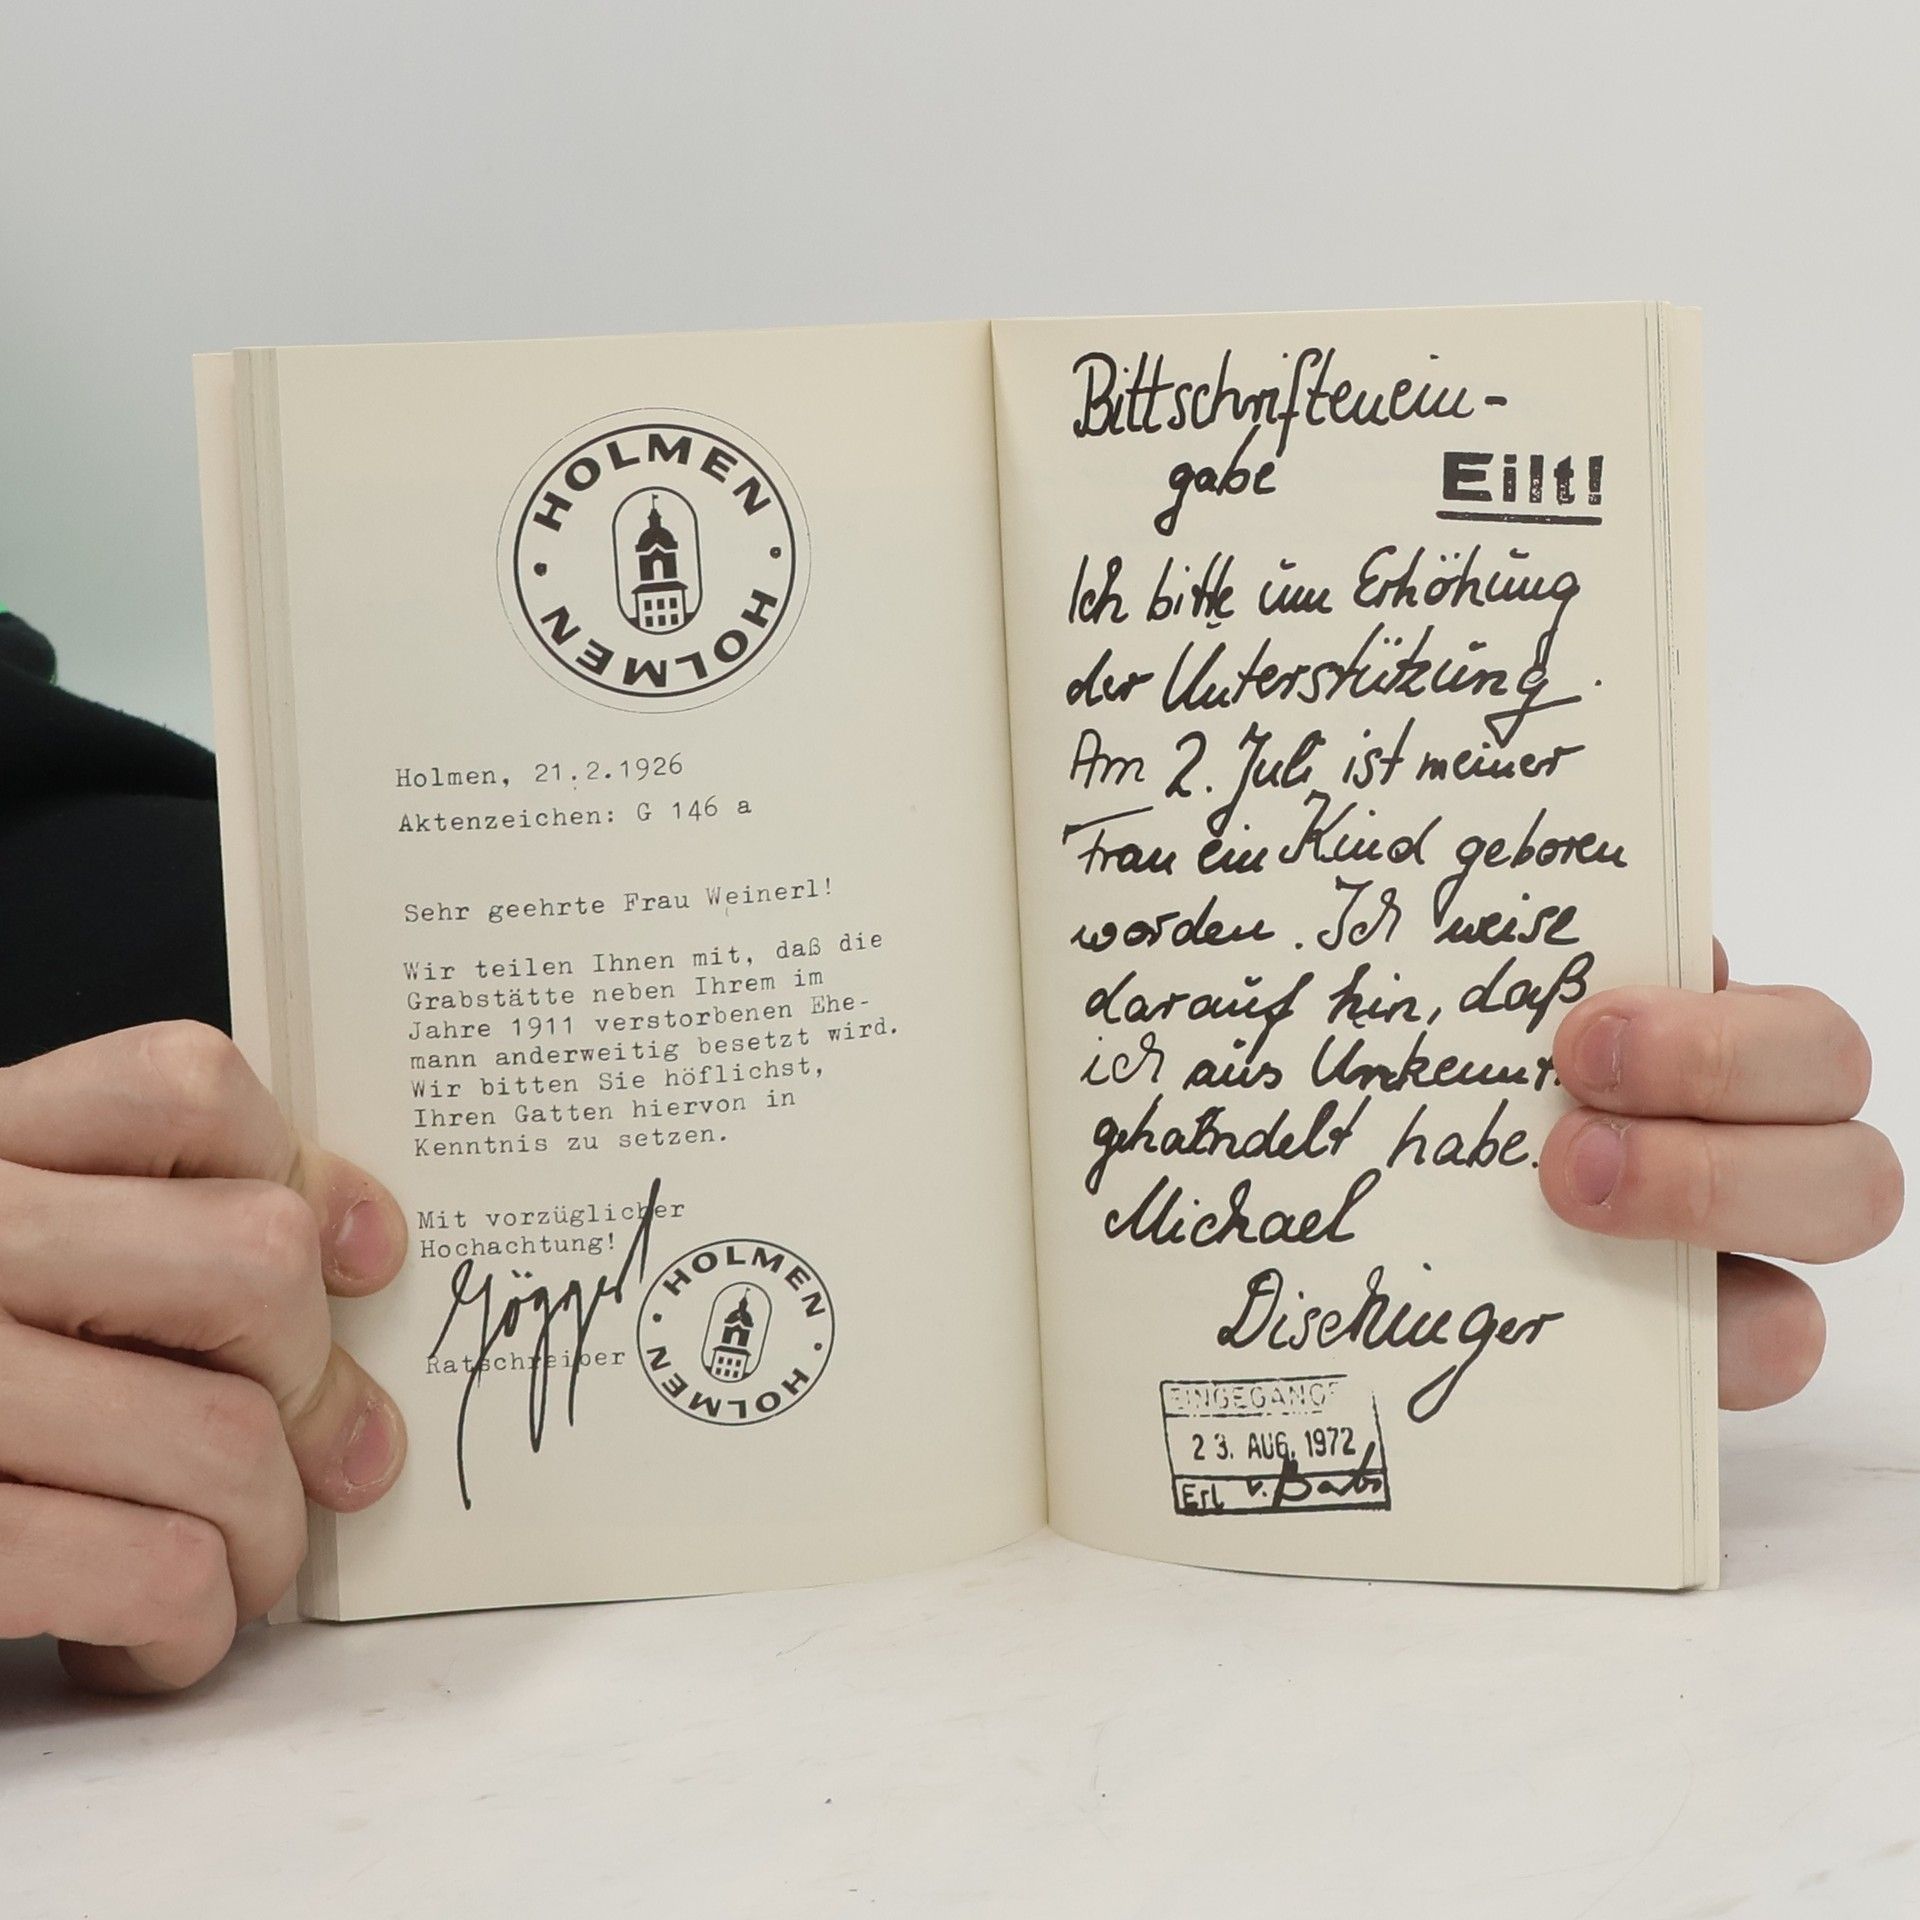 HOLMEN • HOLMEN •
Holmen, 21.2.1926
Aktenzeichen: G 146 a
Sehr geehrte Frau Weinerl!
Wir teilen Ihnen mit, daß die
Grabstätte neben Ihrem im
Jahre 1911 verstorbenen Ehe-
mann anderweitig besetzt wird.
Wir bitten Sie höflichst,
Ihren Gatten hiervon in
Kenntnis zu setzen.
Mit vorzüglicher
Hochachtung!
Ratschreiber
HOLMEN • HOLMEN •
Bittschriftenein-
gabe
Eilt!
Ich bitte um Erhöhung
der Unterstützung.
Am 2. Juli ist meiner
Frau ein Kind geboren
worden. Ich weise
darauf hin, daß
ich aus
gehandelt habe.
Michael
Dischinger
23. AUG. 1972
Erl v.